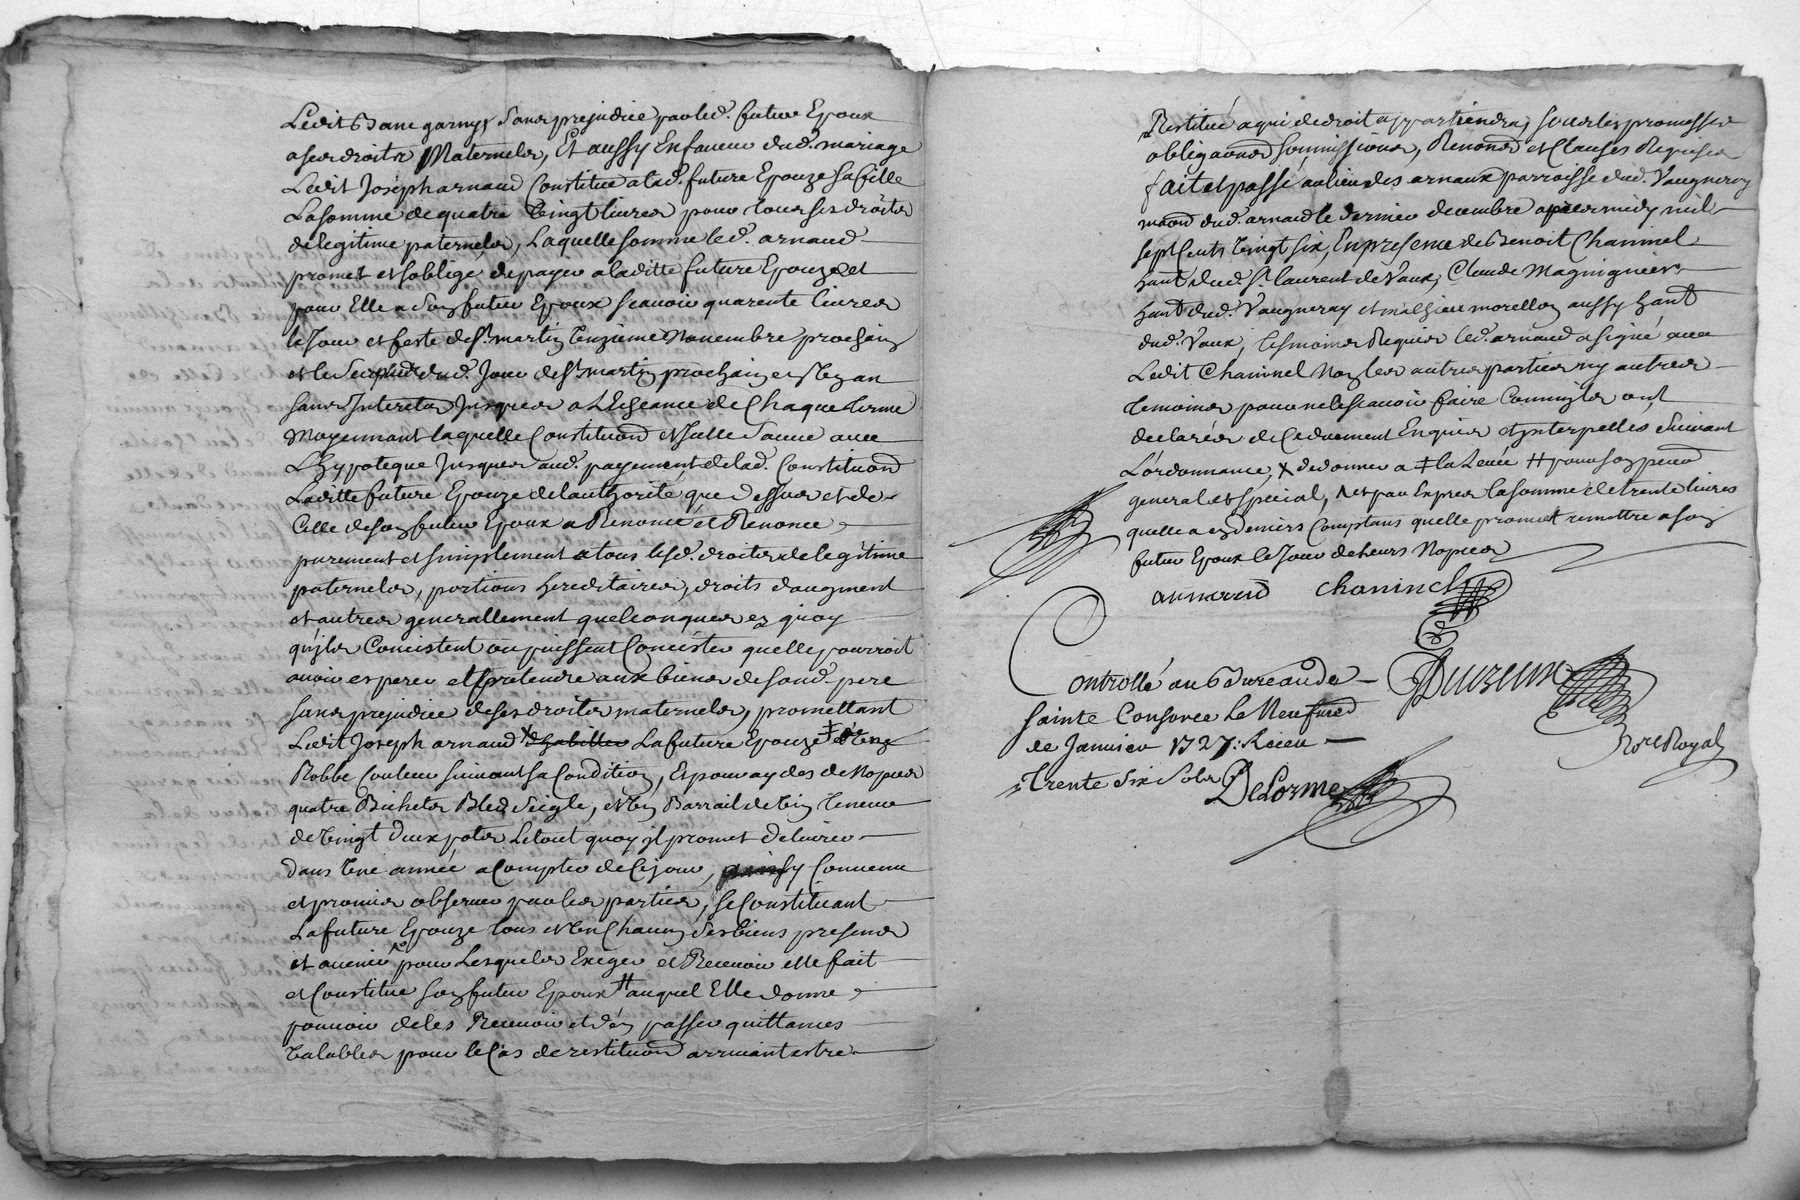 Ledit Banc garny sans prejudice par led. futur Epoux
a ses droits Maternels, Et aussy En faveur dud. mariage
Ledit Joseph arnaud Constitue a lad. future Epouze sa fille
La somme de quatre vingt livres pour tous ses droits
de legitime paternels, Laquelle somme led. arnaud
promet et s'oblige de payer a laditte future Epouze et
pour Elle a son futur Epoux scavoir quarente livres
le Jour et feste de St. martin unzieme Novembre prochain
et le surplus dud. Jour de St. martin prochain en un an
sans Interets Jusques a L'Echeance de Chaque terme
Moyennant laquelle Constituon et Icelle sauve avec
L'hypoteque Jusques aud. payement de lad. Constituon
Laditte future Epouze de l'authorité que dessus et de
Celle de son futur Epoux a Renoncé et Renonce
purement et simplement a tous lesd. droits de legitime
paternels, portions hereditaires, droits d'augment
et autres generallement quelconques en quoy
qu'ils Consistent ou puissent Consister quelle pourroit
avoir esperer et pretendre aux biens de sond. pere
sans prejudice de ses droits maternels, promettant
Ledit Joseph arnaud x d'habiller La future Epouze ‡ d'une
Robbe Couleur suivant sa Condition, Et pour aydes de Nopces
quatre Bichets Bled seigle, et un Barrail de vin teneur
de vingt deux pots Le tout quoy il promet delivrer
dans une année a Compter de Ce jour, ainsy Convenu
et promis observer par les parties, se Constituant
La future Epouze tous et un Chacun ses biens presents
et avenir pour Lesquels Exiger et Recevoir elle fait
et Constitue son futur Epoux # auquel Elle donne
pouvoir de les Recevoir et d'en passer quittances
valables pour le Cas de restituon arrivant estre
Restitué a qui de droit appartiendra, sous les promesses
obligaons soumissions, Renons et Clauses Requises
fait et passé au lieu des arnaux parroisse dud. Vaugneray
maon dud. arnaud le dernier decembre apres midy mil
sept Cents vingt six, En presence de Benoit Chaninel
hant dud. St. laurent de Vaux, Claude Magnignier
hant dud. Vaugneray et mathieu morellon aussy hant
dud. Vaux, tesmoins Requis led. arnaud a signé avec
Ledit Chaninel Non les autres parties ny autres
temoins pour ne le scavoir faire Comm'ils ont
declarés de Ce duement Enquis et Interpellés suivant
L'ordonnance, x de donner a ‡ la Levée # pour son procur
general et special, et par Exprés la somme de trente livres
quelle a en deniers Comptans quelle promet remettre a son
futur Epoux le Jour de leurs Nopces
arnaud chaninel
Duzeun
Nore Royal
Controllé au Bureau de
sainte Consorce Le Neufieme
de Janvier 1727. Receu
trente six sols
DeLorme